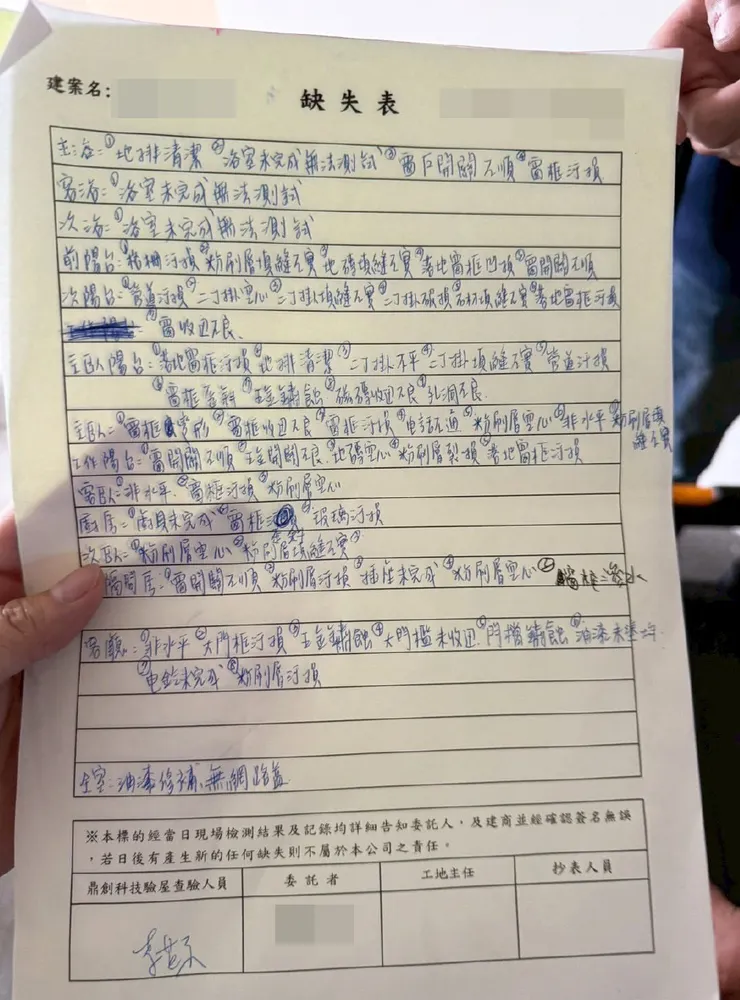 建案名:
缺失表
主浴:①地排清潔 ②浴室未完成無法測試 ③窗戶開關不順 ④窗框汙損
客浴:①浴室未完成無法測試
次浴:①浴室未完成無法測試
前陽台:①格柵汙損 ②粉刷層填縫不實 ③地磚填縫不實 ④落地窗框凹損 ⑤窗開關不順
次陽台:①管道汙損 ②二丁掛空心 ③二丁掛填縫不實 ④二丁掛破損 ⑤石材填縫不實 ⑥落地窗框汙損
⑦窗收邊不良
主臥陽台:①落地窗框汙損 ②地排清潔 ③二丁掛不平 ④二丁掛填縫不實 ⑤管道汙損
⑥窗框歪斜 ⑦五金鏽蝕 ⑧磁磚收邊不良 ⑨孔洞不良
主臥:①窗框變形 ②窗框收邊不良 ③窗框汙損 ④電話不通 ⑤粉刷層空心 ⑥非水平 ⑦粉刷層填縫不實
工作陽台:①窗開關不順 ②五金開關不良 ③地磚空心 ④粉刷層裂損 ⑤落地窗框汙損
客臥:①非水平 ②窗框汙損 ③粉刷層空心
廚房:①廚具未完成 ②窗框 ③玻璃汙損
次臥:①粉刷層空心 ②粉刷層填縫不實
隔間房:①窗開關不順 ②粉刷層汙損 ③插座未完成 ④粉刷層空心 ⑤窗框滲水
客廳:①非水平 ②大門框汙損 ③五金鏽蝕 ④大門檻未收邊 ⑤門擋鏽蝕 ⑥油漆未塗
⑦電鈴未完成 ⑧粉刷層汙損
全室:油漆修補、無網路蓋
※本標的經當日現場檢測結果及記錄均詳細告知委託人,及建商並經確認簽名無誤
,若日後有產生新的任何缺失則不屬於本公司之責任。
鼎創科技驗屋查驗人員 委託者 工地主任 抄表人員